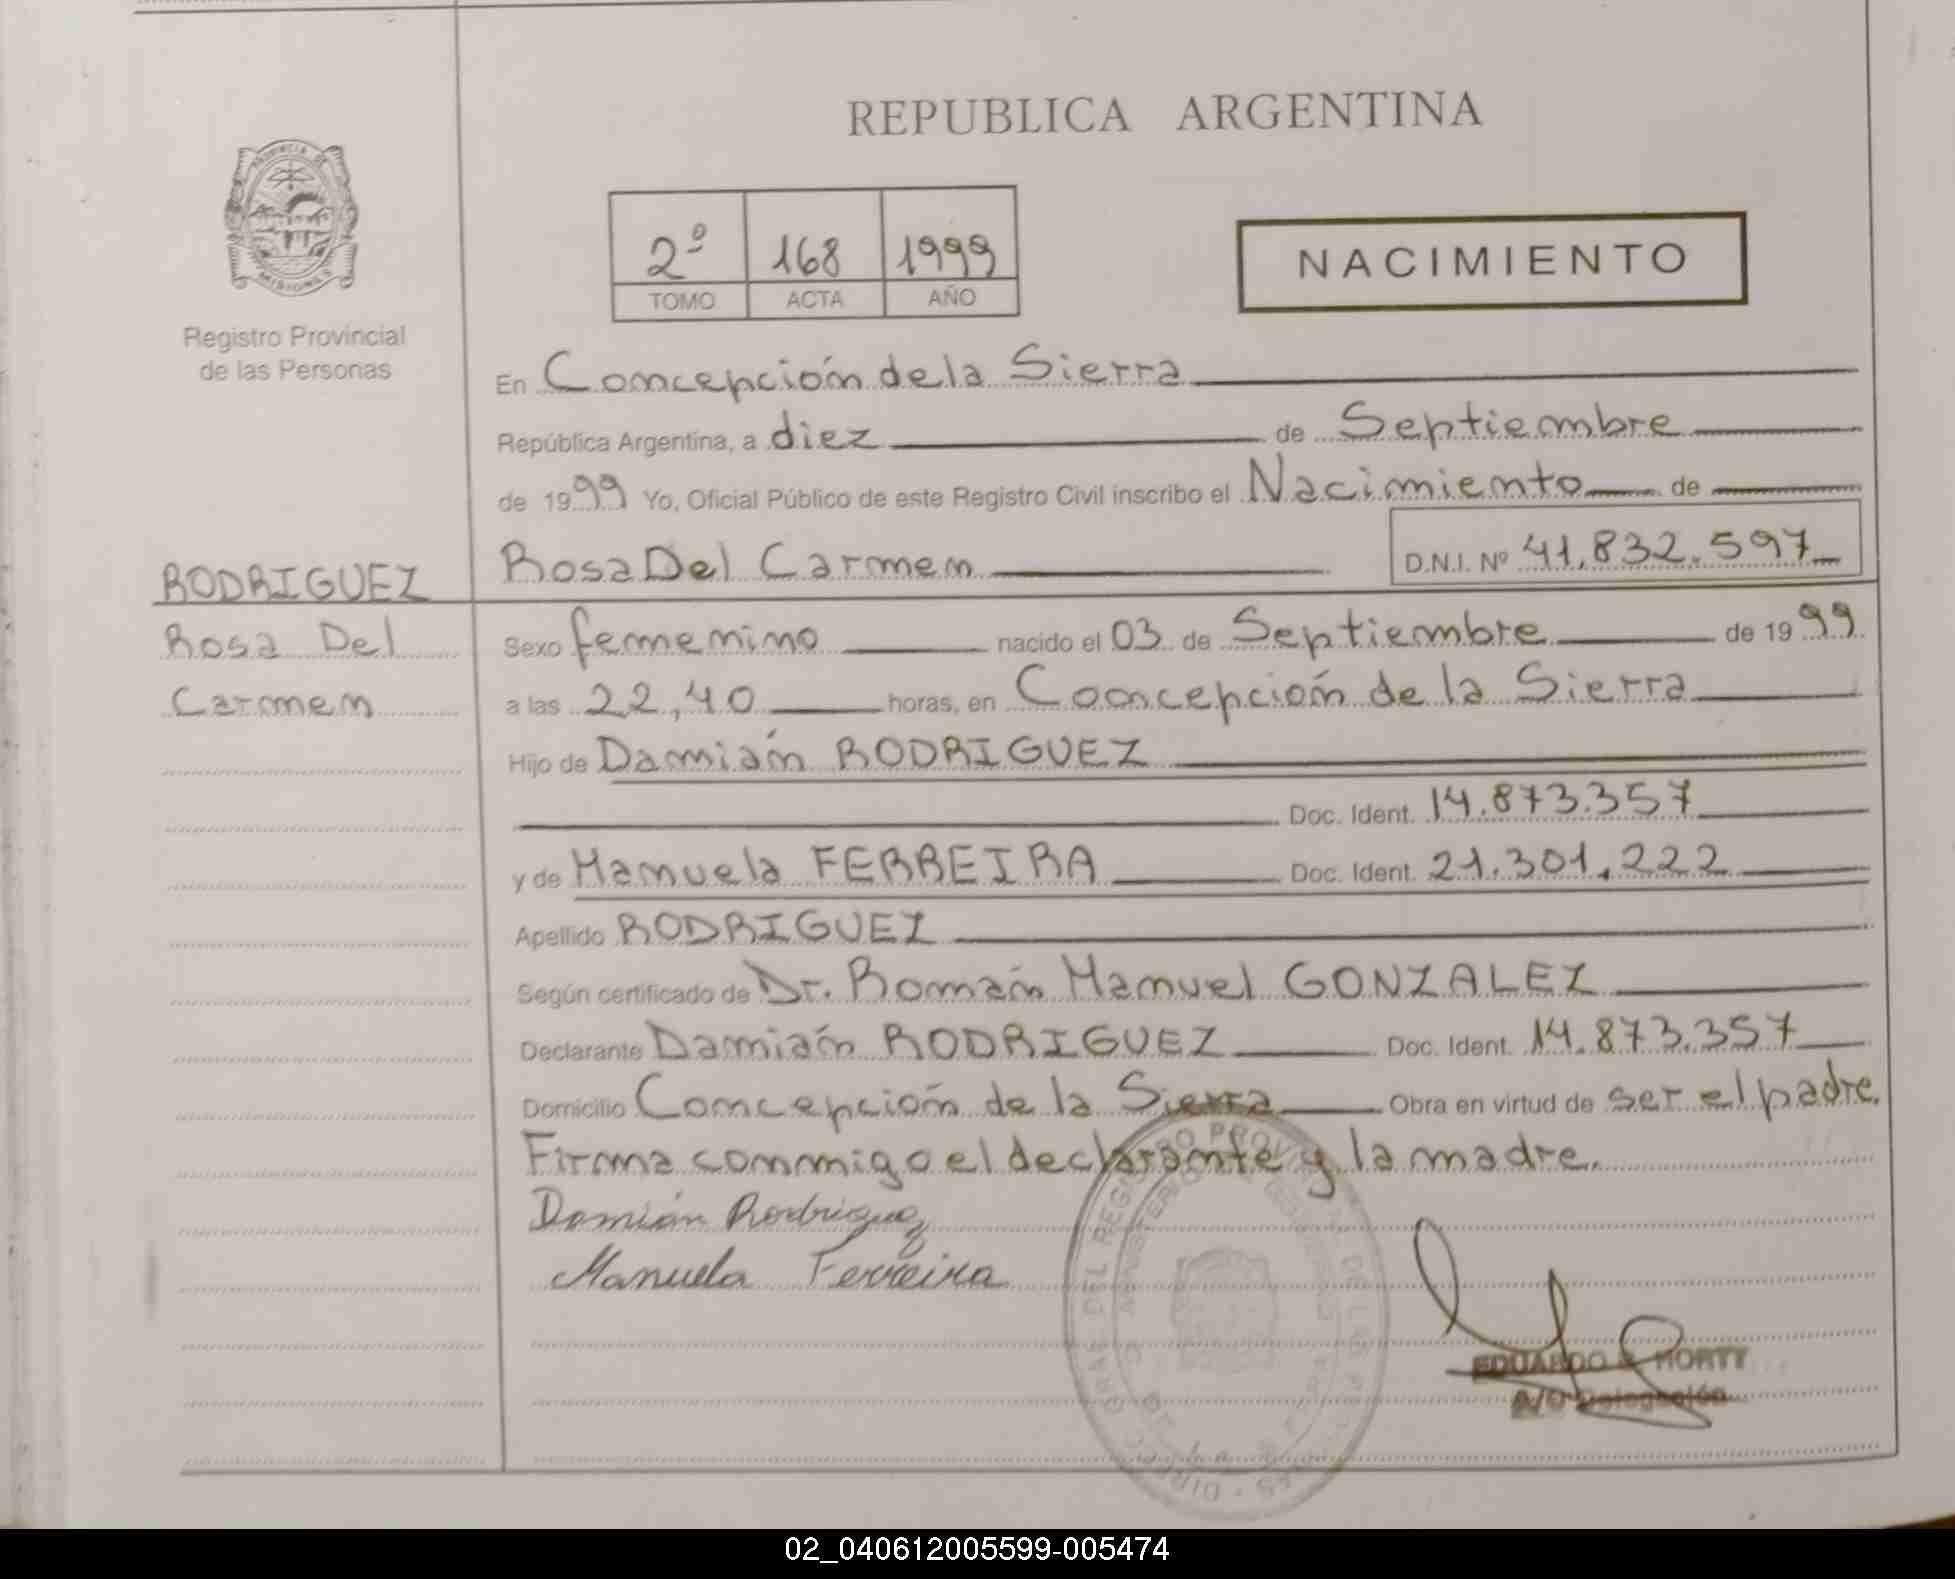 REPUBLICA ARGENTINA
PROVINCIA DE
MISIONES
Registro Provincial
de las Personas
2º 168 1999
TOMO ACTA AÑO
NACIMIENTO
En Concepción de la Sierra
República Argentina, a diez de Septiembre
de 1999 Yo, Oficial Público de este Registro Civil inscribo el Nacimiento de
RODRIGUEZ
Rosa Del
Carmen
Rosa Del Carmen D.N.I. Nº 41.832.597
Sexo femenino nacido el 03 de Septiembre de 1999
a las 22,40 horas, en Concepción de la Sierra
Hijo de Damián RODRIGUEZ
Doc. Ident. 14.873.357
y de Manuela FERREIRA Doc. Ident. 21.301.222
Apellido RODRIGUEZ
Según certificado de Dr. Román Manuel GONZALEZ
Declarante Damián RODRIGUEZ Doc. Ident. 14.873.357
Domicilio Concepción de la Sierra Obra en virtud de ser el padre.
Firma conmigo el declarante y la madre.
Damián Rodriguez
Manuela Ferreira
EDUARDO HORTY
A/C Delegación
02_040612005599-005474